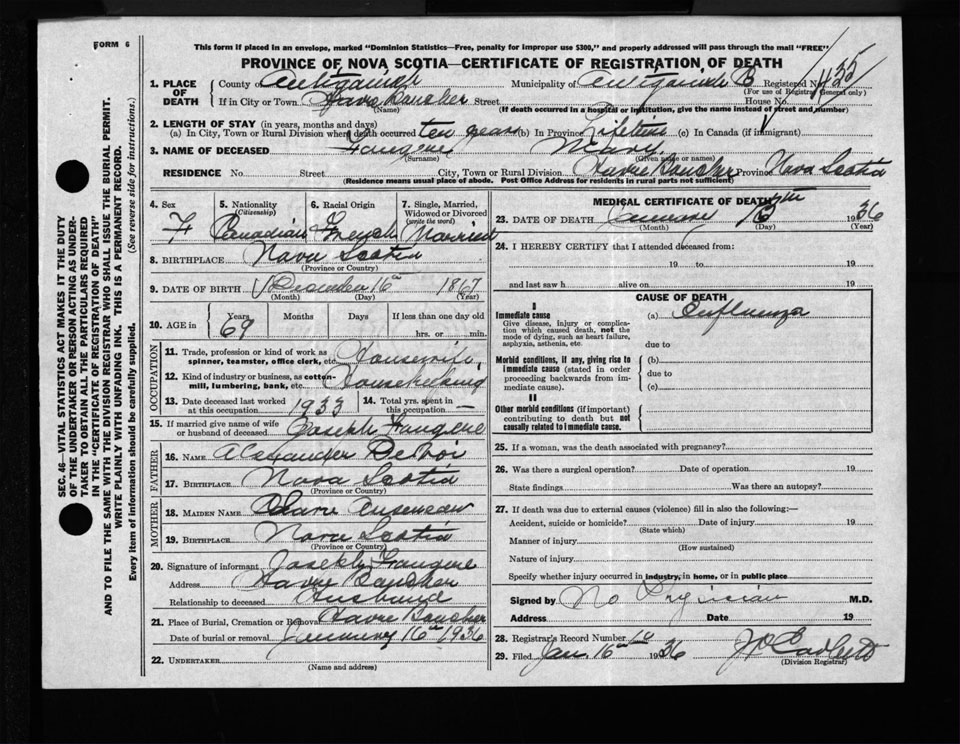 FORM 6
This form if placed in an envelope, marked "Dominion Statistics—Free, penalty for improper use $300," and properly addressed will pass through the mail "FREE"
PROVINCE OF NOVA SCOTIA—CERTIFICATE OF REGISTRATION OF DEATH
1. PLACE OF DEATH County of Antigonish Municipality of Antigonish Registered No. 1135
(For use of Registrar General only)
If in City or Town Havre Boucher Street House No.
(Name) (If death occurred in a hospital or institution, give the name instead of street and number)
2. LENGTH OF STAY (in years, months and days)
(a) In City, Town or Rural Division where death occurred ten years (b) In Province Lifetime (c) In Canada (if immigrant)
3. NAME OF DECEASED Mary
(Surname) (Given name or names)
RESIDENCE No. Street City, Town or Rural Division Havre Boucher Province Nova Scotia
(Residence means usual place of abode. Post Office Address for residents in rural parts not sufficient)
4. Sex F
5. Nationality (Citizenship) Canadian
6. Racial Origin French
7. Single, Married, Widowed or Divorced (write the word) Married
8. BIRTHPLACE Nova Scotia
(Province or Country)
9. DATE OF BIRTH December 16th 1867
(Month) (Day) (Year)
10. AGE in Years 69 Months Days If less than one day
hrs. or min.
OCCUPATION
11. Trade, profession or kind of work as spinner, teamster, office clerk, etc. Housewife
12. Kind of industry or business, as cotton-mill, lumbering, bank, etc. Housekeeping
13. Date deceased last worked at this occupation 1933
14. Total yrs. spent in this occupation —
15. If married give name of wife or husband of deceased Joseph
FATHER
16. NAME Alexander
17. BIRTHPLACE Nova Scotia
(Province or Country)
MOTHER
18. MAIDEN NAME
19. BIRTHPLACE Nova Scotia
(Province or Country)
20. Signature of informant Joseph
Address Havre Boucher
Relationship to deceased Husband
21. Place of Burial, Cremation or Removal Havre Boucher
Date of burial or removal January 16th 1936
22. UNDERTAKER
(Name and address)
MEDICAL CERTIFICATE OF DEATH
23. DATE OF DEATH 1936
(Month) (Day) (Year)
24. I HEREBY CERTIFY that I attended deceased from:
19 to 19
and last saw h alive on 19
CAUSE OF DEATH
I
Immediate cause
Give disease, injury or complication which caused death, not the mode of dying, such as heart failure, asphyxia, asthenia, etc.
(a) Influenza
due to
Morbid conditions, if any, giving rise to immediate cause (stated in order proceeding backwards from immediate cause).
(b)
due to
(c)
II
Other morbid conditions (if important) contributing to death but not causally related to immediate cause.
25. If a woman, was the death associated with pregnancy?
26. Was there a surgical operation? Date of operation 19
State findings Was there an autopsy?
27. If death was due to external causes (violence) fill in also the following:—
Accident, suicide or homicide? Date of injury 19
(State which)
Manner of injury
(How sustained)
Nature of injury
Specify whether injury occurred in industry, in home, or in public place
Signed by No Physician M.D.
Address Date 19
28. Registrar's Record Number
29. Filed Jan. 16th 1936
(Division Registrar)
SEC. 46—VITAL STATISTICS ACT MAKES IT THE DUTY
OF THE UNDERTAKER OR PERSON ACTING AS UNDER-
TAKER TO OBTAIN ALL THE PARTICULARS REQUIRED
IN THE "CERTIFICATE OF REGISTRATION OF DEATH"
AND TO FILE THE SAME WITH THE DIVISION REGISTRAR WHO SHALL ISSUE THE BURIAL PERMIT.
WRITE PLAINLY WITH UNFADING INK. THIS IS A PERMANENT RECORD.
Every item of information should be carefully supplied. (See reverse side for instructions.)